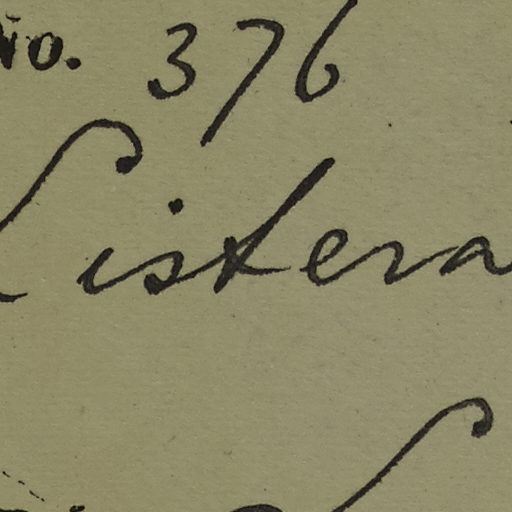 No. 376
Listera